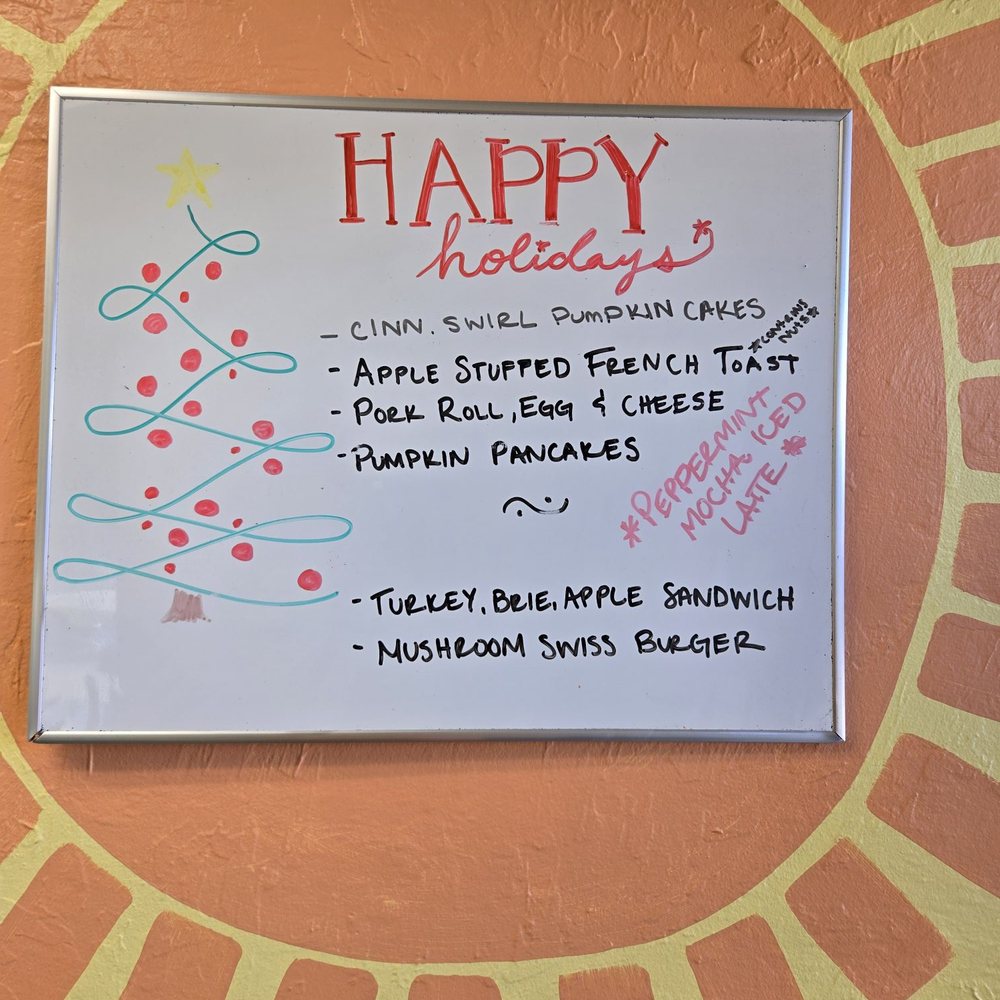 HAPPY
holidays
- CINN. SWIRL PUMPKIN CAKES
*CONTAINS
NUTS*
- APPLE STUFFED FRENCH TOAST
- PORK ROLL, EGG & CHEESE
- PUMPKIN PANCAKES
*PEPPERMINT
MOCHA ICED
LATTE *
- TURKEY, BRIE, APPLE SANDWICH
- MUSHROOM SWISS BURGER